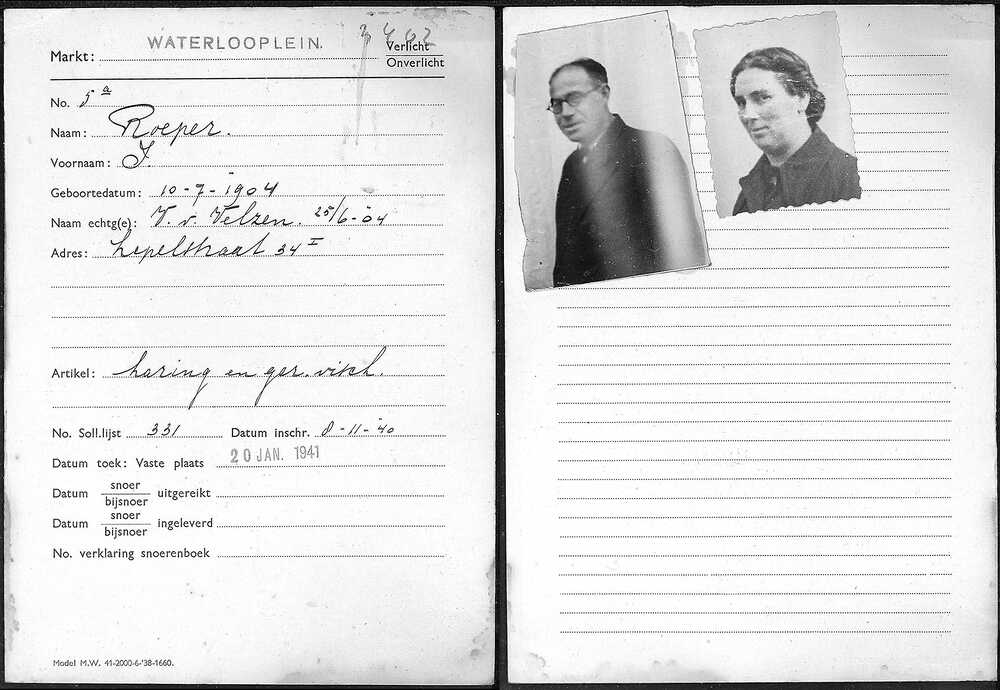 WATERLOOPLEIN.
Markt: Verlicht
Onverlicht
No. 5 a
Naam: Roeper.
Voornaam: J.
Geboortedatum: 10-7-1904
Naam echtg(e): V. v. Velzen. 25/6-04
Adres: Lepelstraat 34 I
Artikel: haring en gar. visch.
No. Soll.lijst 331 Datum inschr. 8-11-'40
Datum toek: Vaste plaats 20 JAN. 1941
Datum snoer/bijsnoer uitgereikt
Datum snoer/bijsnoer ingeleverd
No. verklaring snoerenboek
Model M.W. 41-2000-6-'38-1660.